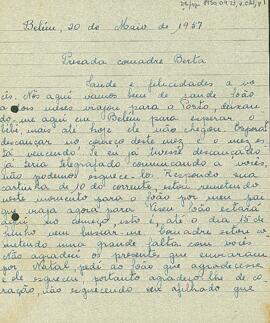 Belém, 20 de Maio de 1957
Prezada comadre Berta
Saude e felicidades a vo-
cês. Nós aqui vamos bem de saude João
a dois meses viajou para o Porto, deixan-
do-me aqui em Belém para esperar o
bébé, mas até hoje ele não chegou. Esperei
descançar no começo deste mez e o mez es-
tá vencendo. Se eu já tivesse descançado
já teria telegrafado comunicando a vocês,
não podemos esquece-los. Respondo sua
cartinha de 10 do corrente, estou remetendo
neste momento para o João por meu pae
que viaja agora para Viseu. João estará
aqui no começo, isto é, até o dia 15 de
Junho vem buscar-me. Comadre estou co-
metendo uma grande falta com vocês.
Não agradeci os presentes que enviaram
por Natal, pedi ao João que agradecesse
e ele esqueceu, portanto agradeço-lhe de co-
ração, não esquecendo seu afilhado que